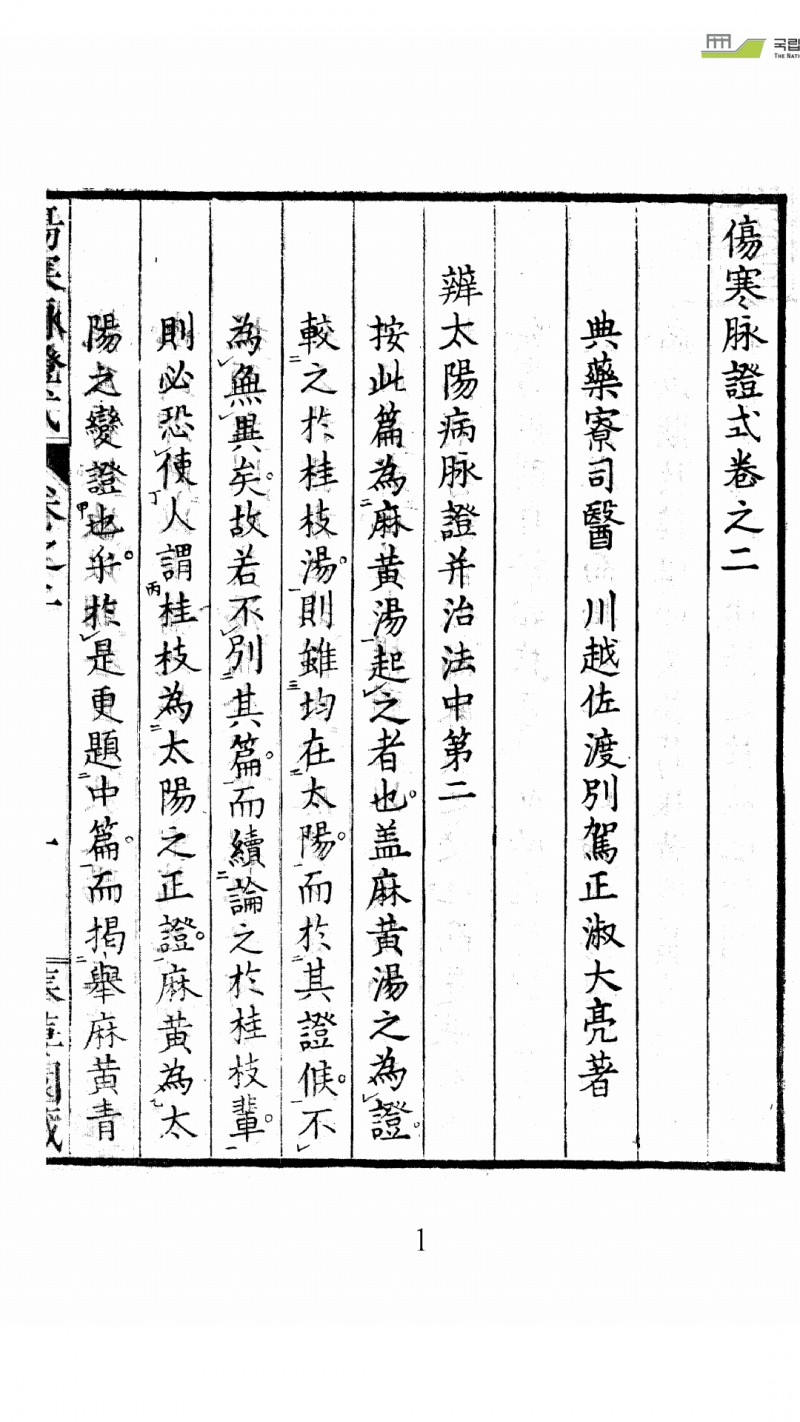 국립
THE NATI
傷寒脉證式卷之二
典藥寮司醫 川越佐渡別駕正淑大亮著
辨太陽病脉證并治法中第二
按此篇為麻黃湯起之者也。盖麻黃湯之為證。
較之於桂枝湯。則雖均在太陽。而於其證候。不
為無異矣。故若不別其篇。而續論之於桂枝輩。
則必恐使人謂桂枝為太陽之正證。麻黃為太
陽之變證也。乎於是更題中篇。而揭舉麻黃青
1